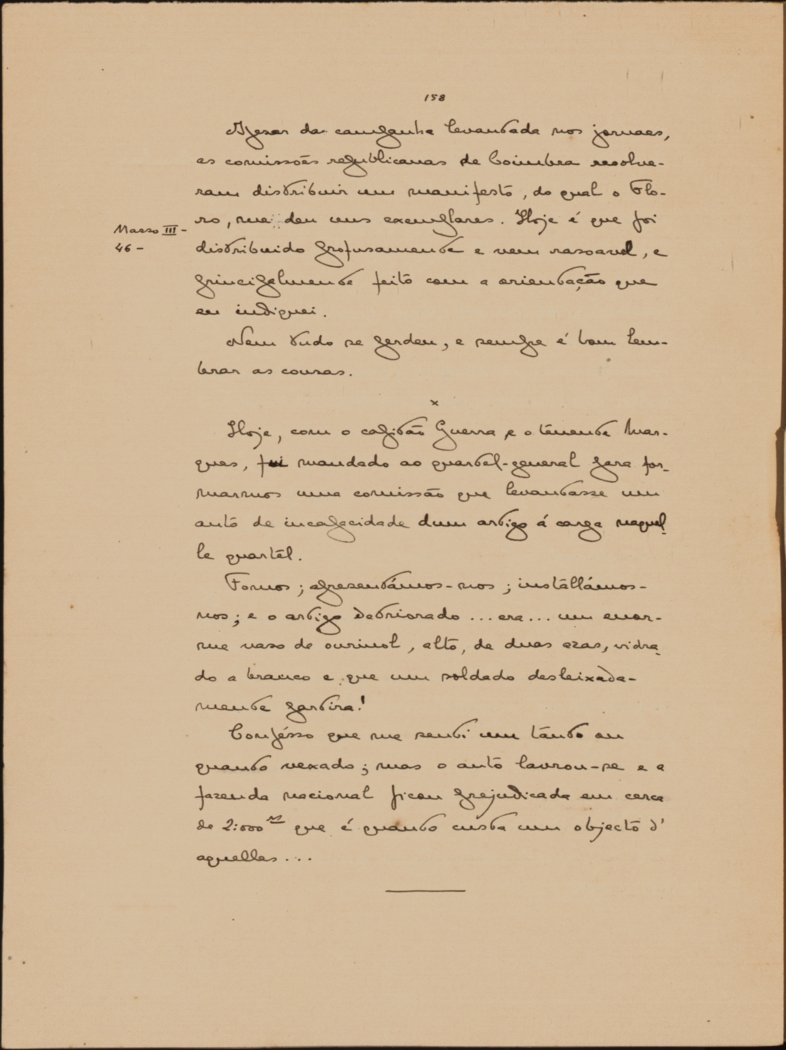 158
Apesar da campanha levantada nos jornaes,
as comissões republicanas de Coimbra resolve-
ram distribuir um manifesto, do qual o Flo-
ro, me deu uns exemplares. Hoje é que foi
Masso III-
46-
distribuido profusamente e vem rasoavel, e
principalmente feito com a orientação que
eu indiquei.
Nem tudo se perdeu, e sempre é bom lem-
brar as cousas.
x
Hoje, com o capitão Guerra e o tenente Mar-
ques, fui mandado ao quartel-general para for-
marmos uma comissão que levantasse um
auto de incapacidade dum artigo á carga naquel-
le quartel.
Fomos; apresentámos-nos; installámos-
nos; e o artigo detriorado ... era ... um enor-
me vaso de ourinol, alto, de duas azas, vidra-
do a branco e que um soldado desleixada-
mente partira!
Confésso que me senti um tanto ou
quanto vexado; mas o auto lavrou-se e a
fazenda nacional ficou prejudicada em cerca
de 2:000 rs que é quanto custa um objecto d'
aquelles...